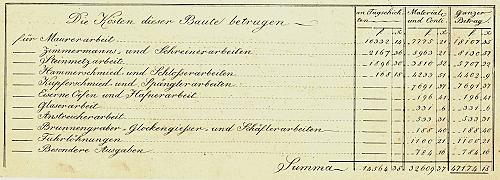 Die Kosten dieser Baute betragen. an Tagschich- ten. Material. und Conti. Ganzer Betrag.
f x f x f x
für Maurerarbeit 10332 14 7775 21 18107 35
Zimmermanns- und Schreinerarbeiten 2167 36 5963 21 8130 57
Steinmetzarbeit 1896 30 3810 52 5707 29
Hammerschmied- und Schlosserarbeiten 168 18 4233 51 4402 9
Kupferschmied- und Spänglerarbeiten 7691 37 7691 37
Eiserne Oefen und Hafnerarbeit 196 41 196 41
Glaserarbeit 331 6 331 6
Anstreicherarbeit 531 31 531 31
Brunnengraber-, Glockengießer- und Schäflerarbeiten 188 40 188 40
Fuhrlöhnungen 1100 21 1100 21
Besondere Ausgaben 784 16 784 16
Summa 14564 38 32609 37 47174 15